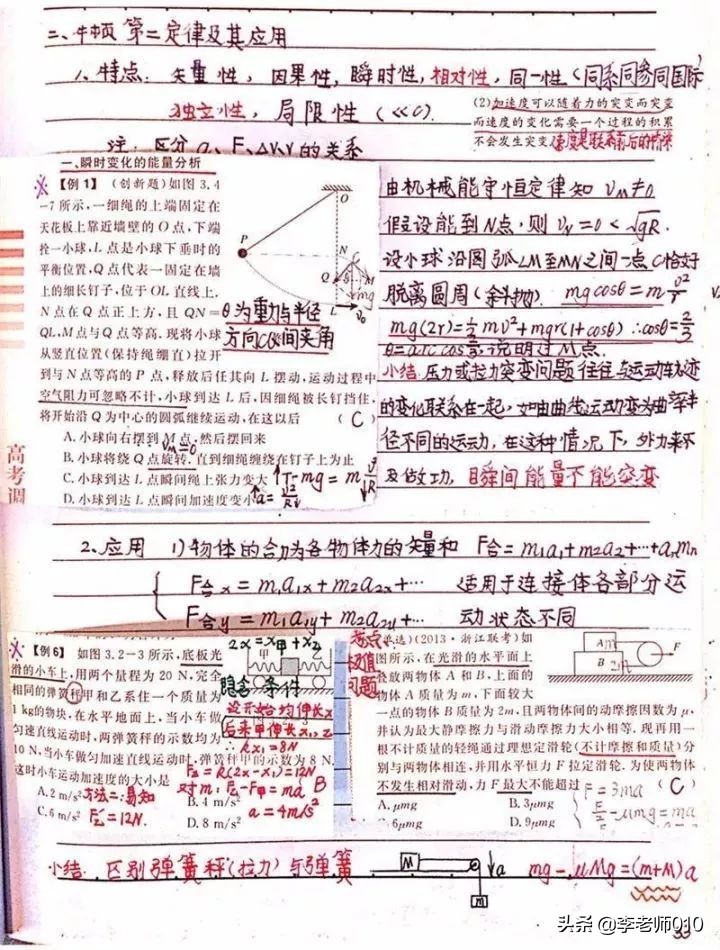 二、牛顿第二定律及其应用
1、特点: 矢量性, 因果性, 瞬时性, 相对性, 同一性(同系同参同国际)
独立性, 局限性(<<c).
(2)加速度可以随着力的突变而突变
而速度的变化需要一个过程的积累
不会发生突变
注: 区分 a、F、Δv、v的关系
一、瞬时变化的能量分析
【例1】(创新题)如图3.4
-7所示,一细绳的上端固定在
天花板上靠近墙壁的O点,下端
拴一小球,L点是小球下垂时的
平衡位置,Q点代表一固定在墙
上的细长钉子,位于OL直线上,
N点在Q点正上方,且QN=
QL,M点与Q点等高.现将小球
从竖直位置(保持绳绷直)拉开
到与N点等高的P点,释放后任其向L摆动,运动过程中
空气阻力可忽略不计,小球到达L后,因细绳被长钉挡住,
将开始沿Q为中心的圆弧继续运动,在这以后 (C)
A.小球向右摆到M点,然后摆回来
vM=0
B.小球将绕Q点旋转,直到细绳缠绕在钉子上为止
C.小球到达L点瞬间绳上张力变大 ↑T-mg=m v²/R↓
D.小球到达L点瞬间加速度变小 ↑a=v²/R↓
O
P
N
Q
C
M
mg
L
v₀
θ为重力与半径
方向CQ间夹角
由机械能守恒定律知 vM≠0
假设能到N点,则 vN=0<√gR.
设小球沿圆弧LM至MN之间一点C恰好
脱离圆周(斜抛) mgcosθ=m v²/r
mg(2r)=½mv²+mgr(1+cosθ) ∴cosθ=2/3
θ=arc cos 2/3, 说明过M点.
小结: 压力或拉力突变问题往往与运动轨迹
的变化联系在一起,如由曲线运动变为曲率半
径不同的运动,在这种情况下,外力来不
及做功,瞬间能量不能突变
高考调
2、应用 1)物体的合力为各物体力的矢量和 F合=m₁a₁+m₂a₂+…+anmn
F合x=m₁a₁x+m₂a₂x+… 适用于连接体各部分运
F合y=m₁a₁y+m₂a₂y+… 动状态不同
【例6】 如图3.2-3所示,底板光
滑的小车上,用两个量程为20 N,完全
相同的弹簧秤甲和乙系住一个质量为
1 kg的物块,在水平地面上,当小车做
匀速直线运动时,两弹簧秤的示数均为
10 N,当小车做匀加速直线运动时,弹簧秤甲的示数为8 N,
这时小车运动加速度的大小是
A.2 m/s²
B.4 m/s²
C.6 m/s²
D.8 m/s²
2x=x甲+x乙
甲
乙
隐含条件
设开始均伸长x
后来甲伸长x₁,
∴kx₁=8N
F乙=k(2x-x₁)=12N
对m: F乙-F甲=ma B
a=4m/s²
方法二:易知
F乙=12N.
考点:
极值
问题
(单选)(2013·浙江联考)如
图所示,在光滑的水平面上
叠放两物体A和B,上面的
物体A质量为m,下面较大
一点的物体B质量为2m,且两物体间的动摩擦因数为μ,
并认为最大静摩擦力与滑动摩擦力大小相等.现再用一
根不计质量的轻绳通过理想定滑轮(不计摩擦和质量)分
别与两物体相连,并用水平恒力F拉定滑轮,为使两物体
不发生相对滑动,力F最大不能超过 (C)
A.μmg
B.3μmg
C.6μmg
D.9μmg
A m
B 2m
F
F=3ma
F/2-μmg=ma
小结: 区别弹簧秤(拉力)与弹簧
M
m
↓a
mg-μMg=(m+M)a
33
头条 @李老师010